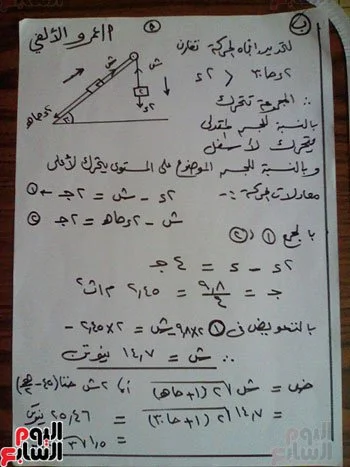 ب
٥
أ/عمرو الألفي
لتحديد اتجاه الحركة نقارن
٢ء > ٢ء حا ٣٠
∴ المجموعة تتحرك
بالنسبة للجسم المتدلى
يتحرك لأسفل
ش
ش
٢
٢
٢ء
٢ء حاهـ
٣٠
وبالنسبة للجسم الموضوع على المستوى يتحرك لأعلى
معادلات الحركة :-
٢ء - ش = ٢جـ ← ①
ش - ٢ء حاهـ = ٢جـ ②
بجمع ① ، ②
٢ء - ء = ٤ جـ
جـ = ٩,٨/٤ = ٢,٤٥ م/ث٢
بالتعويض فى ① ٢×٩,٨ - ش = ٢×٢,٤٥
∴ ش = ١٤,٧ نيوتن
ض = ش √٢(١+حاهـ) أ، ٢ش حتا(٤٥-هـ/٢)
= ١٤,٧ √٢(١+حا٣٠) = ٢٥,٤٦ نيوتن
اليوم السابع
اليوم السابع